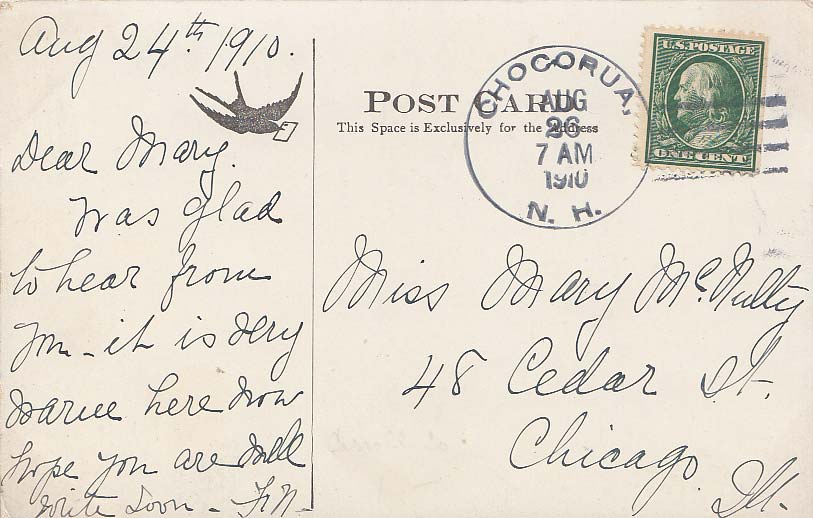 Aug 24th 1910.
Dear Mary.
Was glad
to hear from
you - it is very
warm here now
hope you are well
write soon -
POST CARD
This Space is Exclusively for the Address
CHOCORUA,
AUG
26
7 AM
1910
N. H.
U.S. POSTAGE
ONE CENT
Miss Mary McNulty
48 Cedar St.
Chicago
Ill.